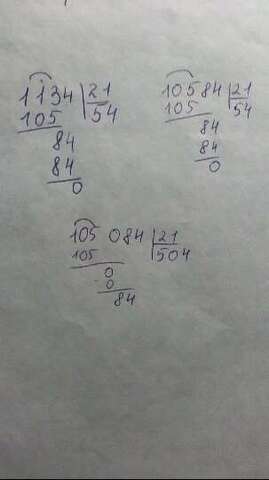 1134 | 21
105 | 54
84
84
0
10584 | 21
105 | 54
84
84
0
105 084 | 21
105 | 504
0
0
84